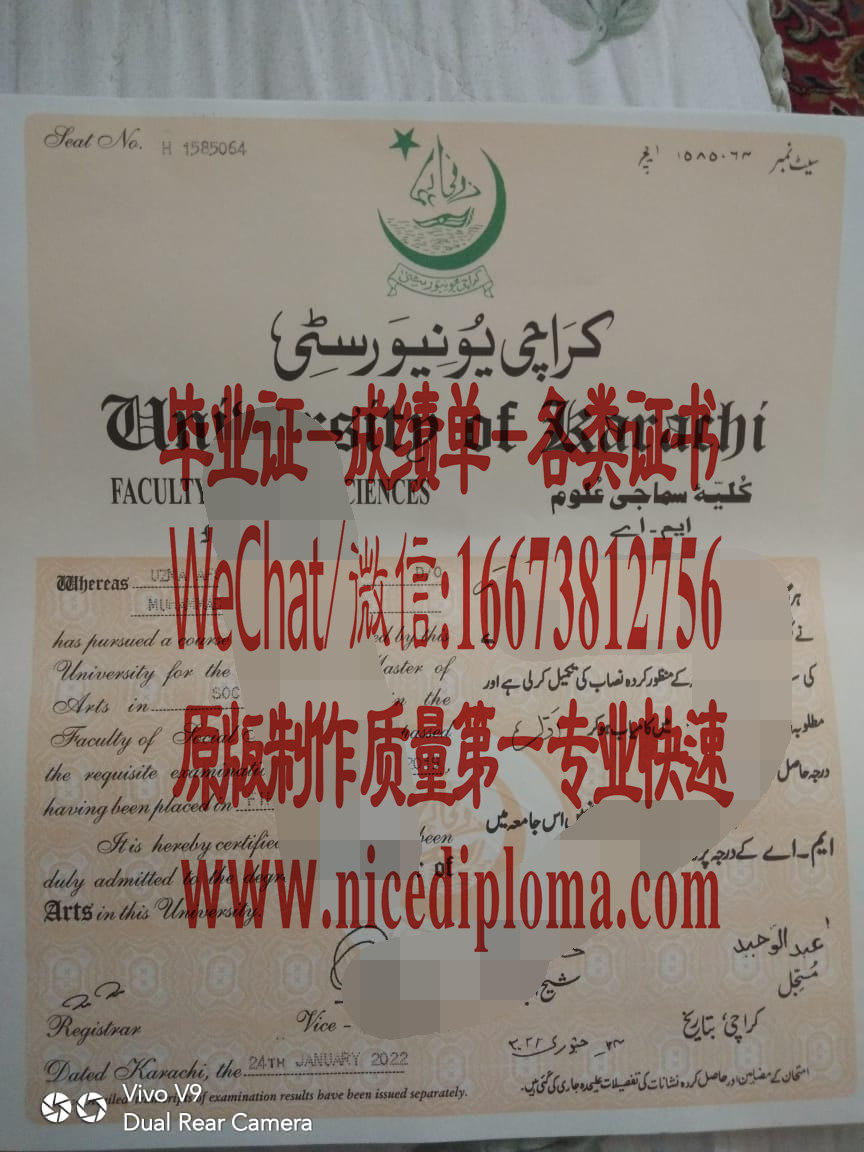 Seat No. H 1585064
سیٹ نمبر ۱۵۸۵۰۶۴ ایچ
کراچی یونیورسٹی
کَراچی یُونِیوَرسٹِی
University of Karachi
毕业证-成绩单-各类证书
FACULTY
CIENCES
کُلیّۂ سماجی عُلوم
ایم-اے
WeChat/微信:16673812756
Whereas UZMA D/O
MUHAMMAD
has pursued a course ed by this
University for the Master of
Arts in SOC in the
Faculty of Social passed
the requisite examination 2019,
having been placed in
کے منظور کردہ نصاب کی تکمیل کرلی ہے اور
原版制作质量第一专业快速
درجہ حاصل
اس جامعہ میں
ایم-اے کے درجہ پر
It is hereby certified been
duly admitted to the degree of
Arts in this University.
www.nicediploma.com
عبدالوحید
مُسَجِّل
Registrar
Vice-
شیخ
کراچی بتاریخ
۲۴ جنوری ۲۰۲۲
Dated Karachi, the 24TH JANUARY 2022
of examination results have been issued separately.
امتحان کے مضامین اور حاصل کردہ نشانات کی تفصیلات علیحدہ جاری کی گئی ہیں۔
Vivo V9
Dual Rear Camera